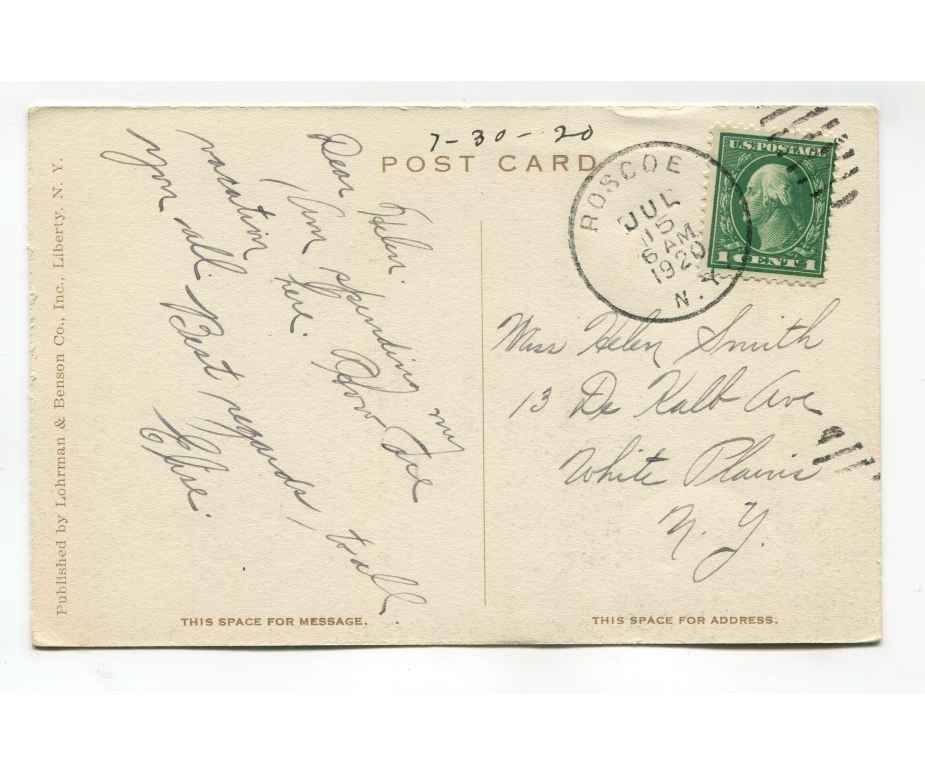 7-30-20
POST CARD
ROSCOE
JUL
15
6 AM
1920
N.Y.
U.S. POSTAGE
1 CENT 1
Dear Helen.
Am spending my
vacation here. How are
you all. Best regards, to all
Elsie.
Miss Helen Smith
13 De Kalb Ave
White Plains
N.Y.
THIS SPACE FOR MESSAGE.
THIS SPACE FOR ADDRESS.
Published by Lohrman & Benson Co., Inc., Liberty, N. Y.